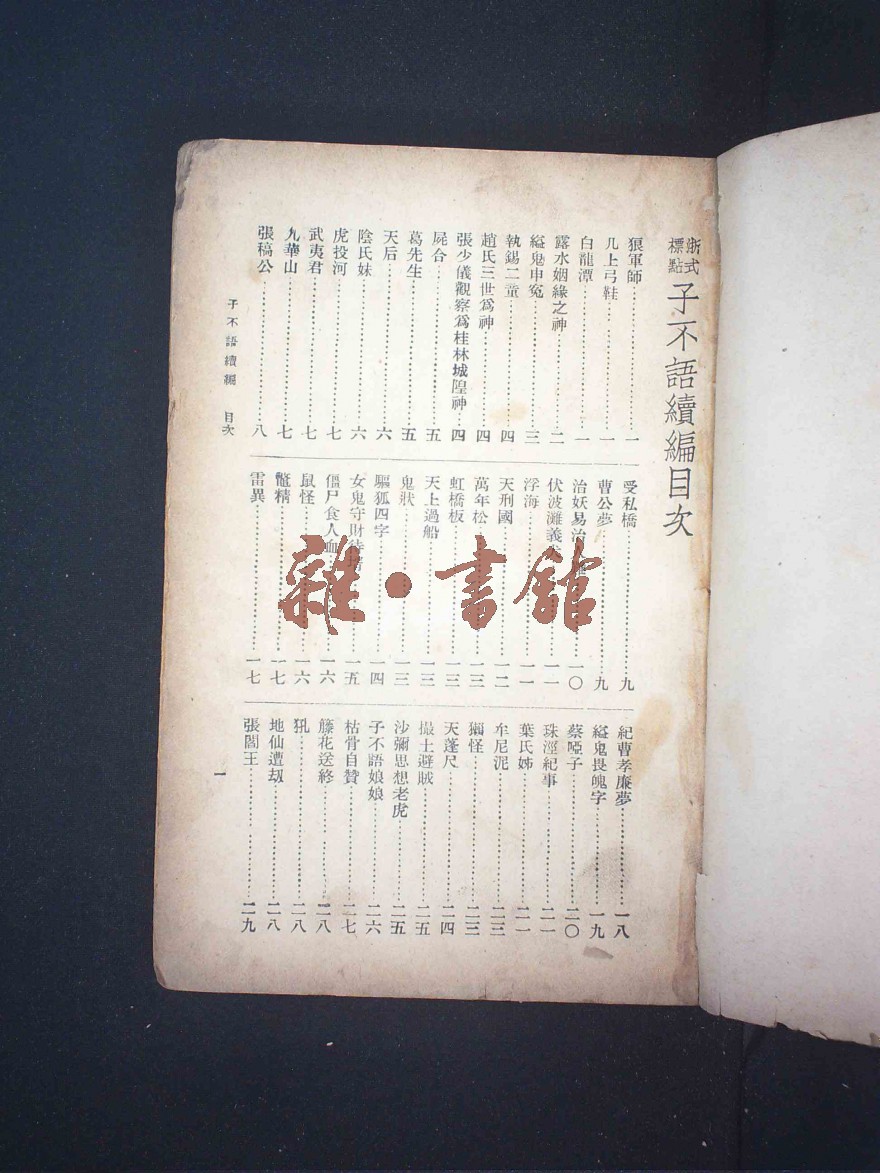 新式標點 子不語續編目次
狼軍師…一
几上弓鞋…一
白龍潭…一
露水姻緣之神…二
縊鬼申冤…三
執錫二童…四
趙氏三世爲神…四
張少儀觀察爲桂林城隍神…四
屍合…五
葛先生…五
天后…六
陰氏妹…六
虎投河…七
武夷君…七
九華山…七
張稿公…八
受私橋…九
曹公夢…九
治妖易治…一〇
伏波灘義…一一
浮海…一一
天刑國…一二
萬年松…一三
虹橋板…一三
天上過船…一三
鬼狀…一三
驅狐四字…一四
女鬼守財待…一五
僵尸食人血…一六
鼠怪…一六
鼈精…一七
雷異…一七
紀曹孝廉夢…一八
縊鬼畏魄字…一九
蔡啞子…二〇
珠涇紀事…二一
葉氏姊…二一
牟尼泥…二三
獺怪…二三
天蓬尺…二四
撮土避賊…二五
沙彌思想老虎…二五
子不語娘娘…二六
枯骨自贊…二七
籐花送終…二八
犼…二八
地仙遭劫…二八
張閻王…二九
子不語續編 目次
一
雜·書館